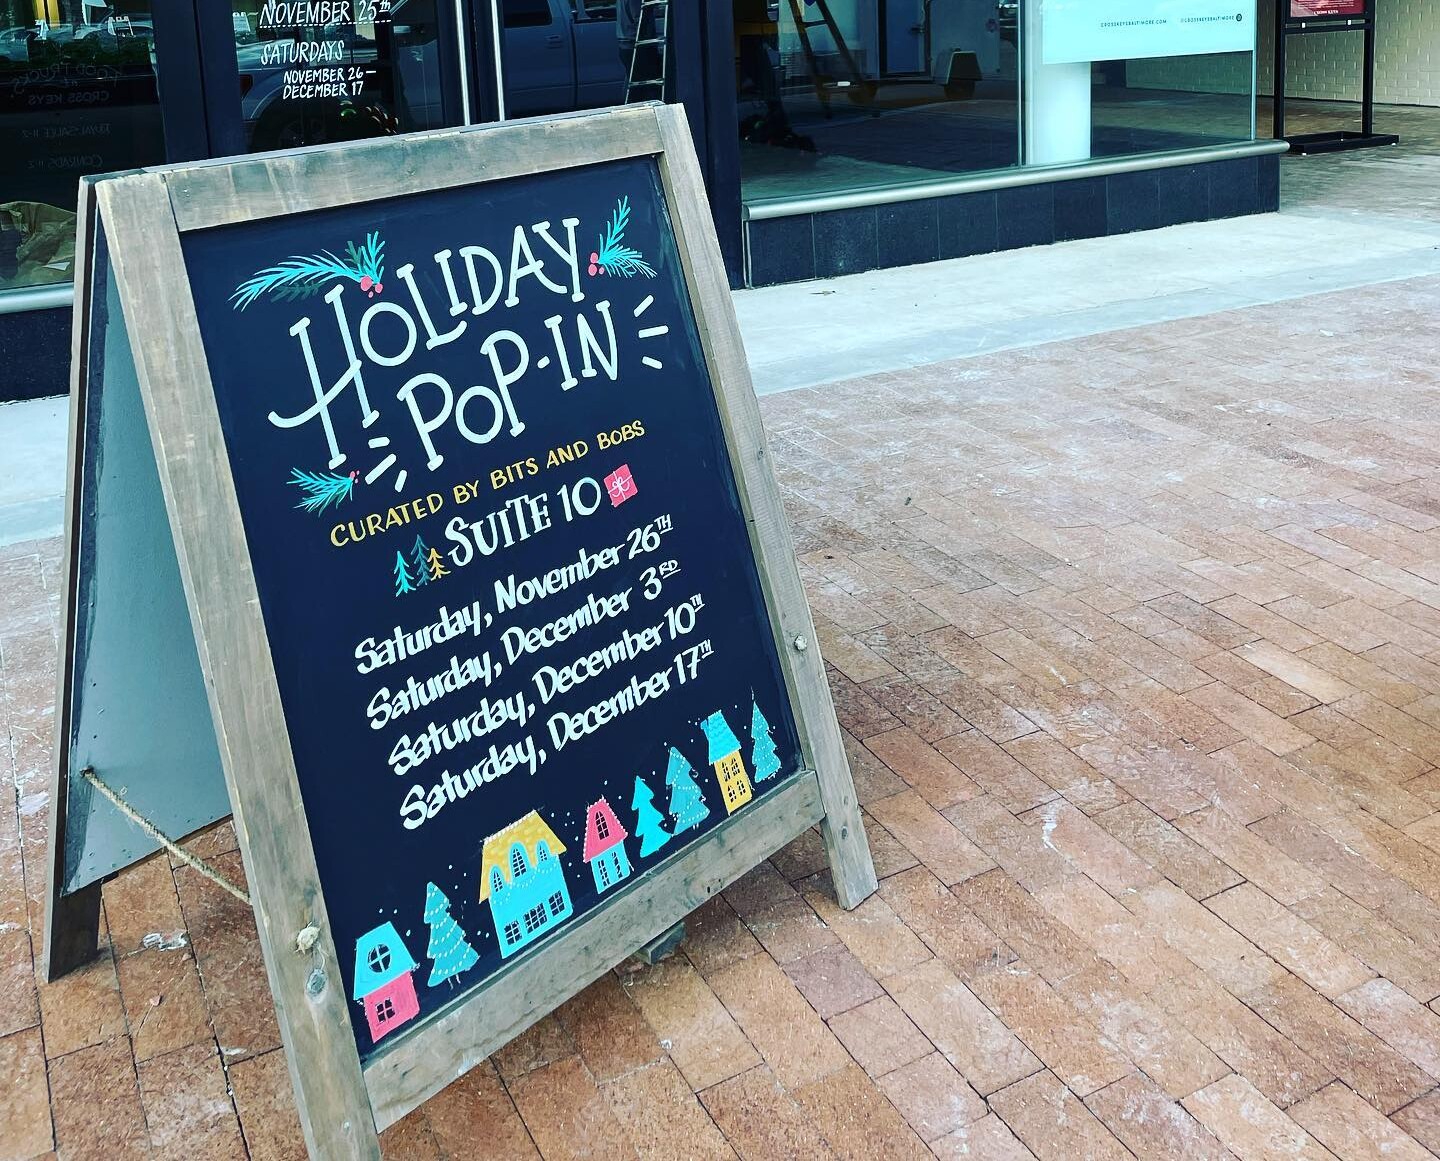 NOVEMBER 25th
SATURDAYS
NOVEMBER 26 –
DECEMBER 17
CROSSKEYSBALTIMORE.COM @CROSSKEYSBALTIMORE
FOOD TRUCKS
CROSS KEYS
HOLIDAY
POP-IN
CURATED BY BITS AND BOBS
SUITE 10
Saturday, November 26TH
Saturday, December 3RD
Saturday, December 10TH
Saturday, December 17TH